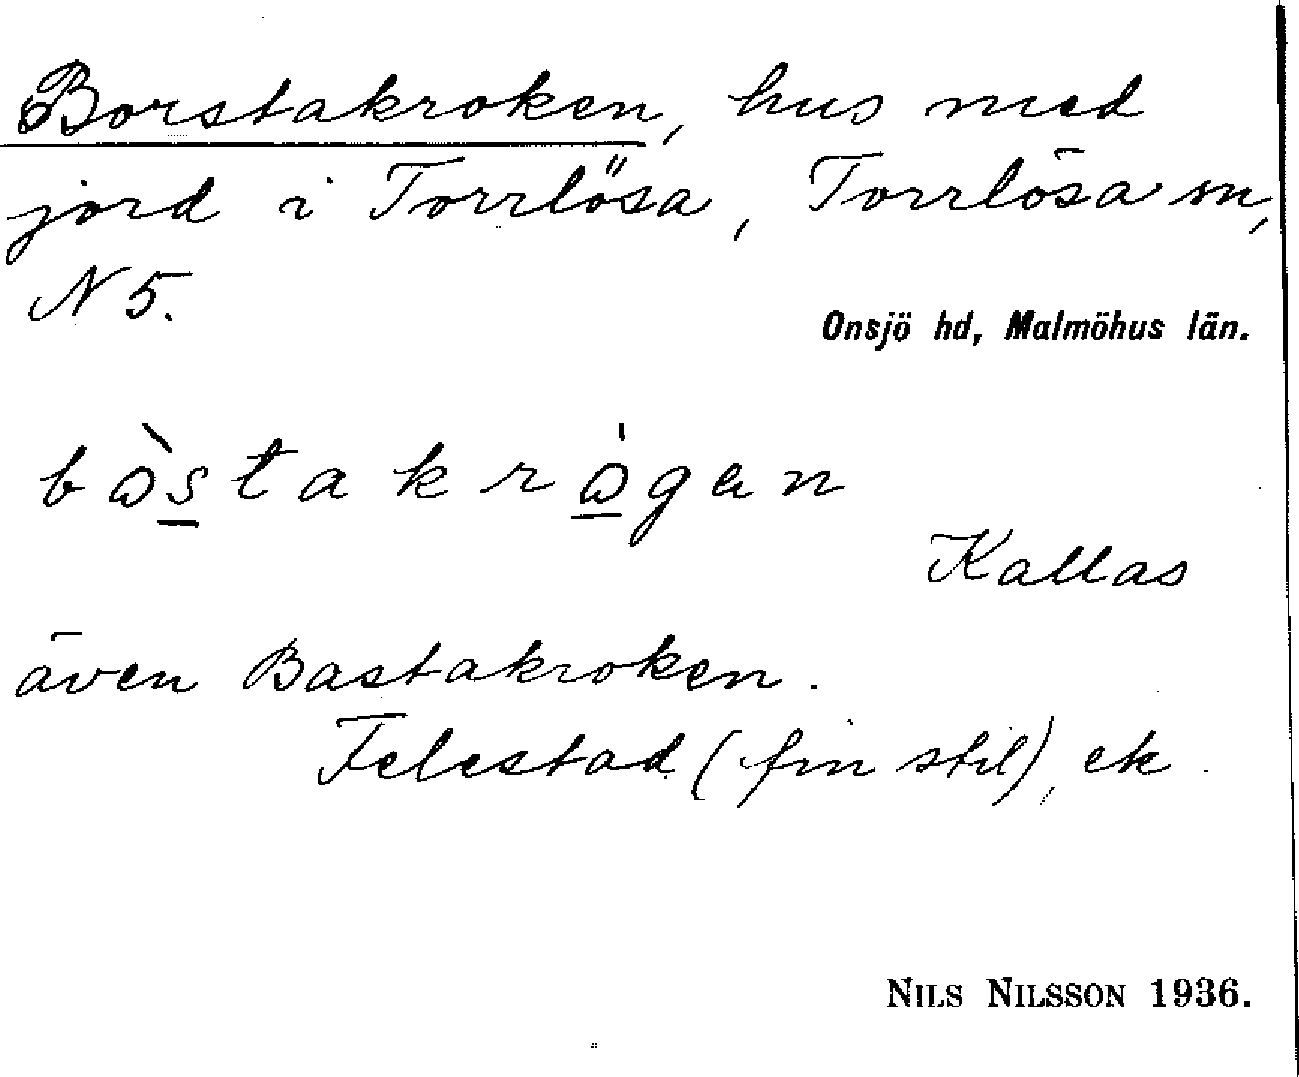 Borstakroken, hus med
jord i Torrlösa, Torrlösa sn,
N 5.
Onsjö hd, Malmöhus län.
bɷ̀stakrɷ́gan
Kallas
även Bastakroken.
Felestad (fin stil), ek.
NILS NILSSON 1936.